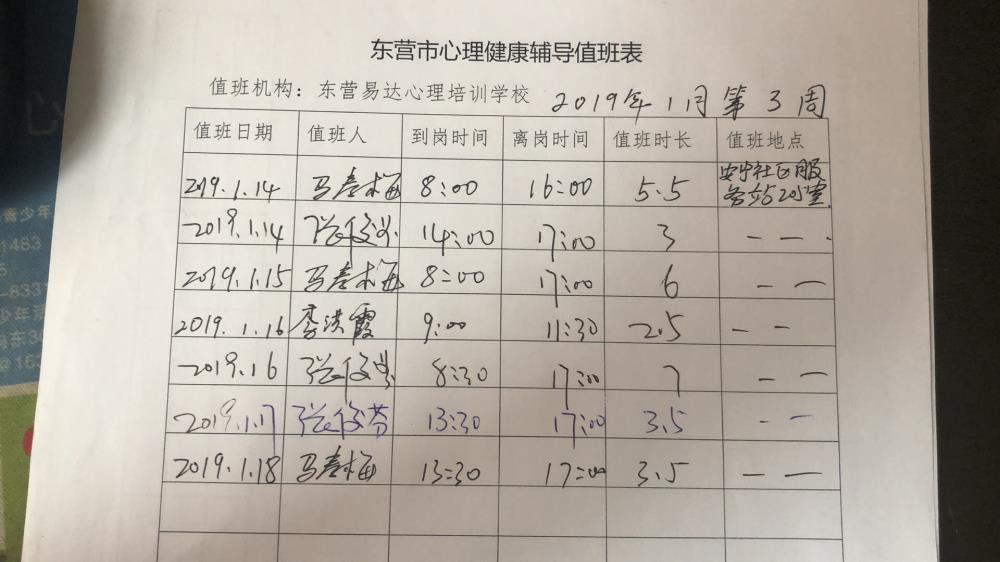 东营市心理健康辅导值班表
值班机构：东营易达心理培训学校 2019年1月第3周
值班日期 值班人 到岗时间 离岗时间 值班时长 值班地点
2019.1.14 马春梅 8:00 16:00 5.5 安宁社区服
务站201室
2019.1.14 14:00 17:00 3 — —
2019.1.15 马春梅 8:00 17:00 6 — —
2019.1.16 李洪霞 9:00 11:30 2.5 — —
2019.16 8:30 17:00 7 — —
2019.1.17 13:30 17:00 3.5 — —
2019.1.18 马春梅 13:30 17:00 3.5 — —
心
青少年
1483
-8331